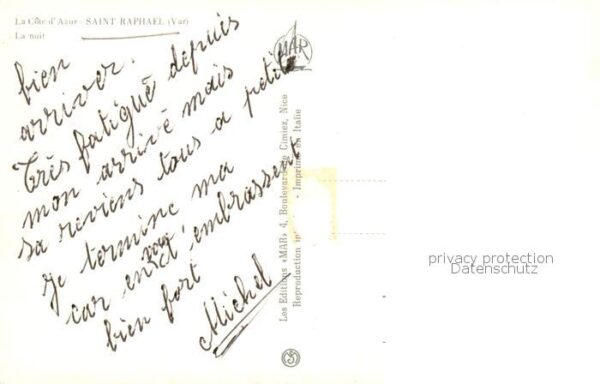 La Côte d'Azur - SAINT RAPHAEL (Var)
La nuit
bien
arriver.
Très fatigué depuis
mon arrivé mais
sa reviens tous a petit
je termine ma
car en vous
t'embrassent
bien fort
Michel
MAR
Les Editions «MAR» 4, Boulevard de Cimiez, Nice
Reproduction - Imprimé en Italie
privacy protection
Datenschutz